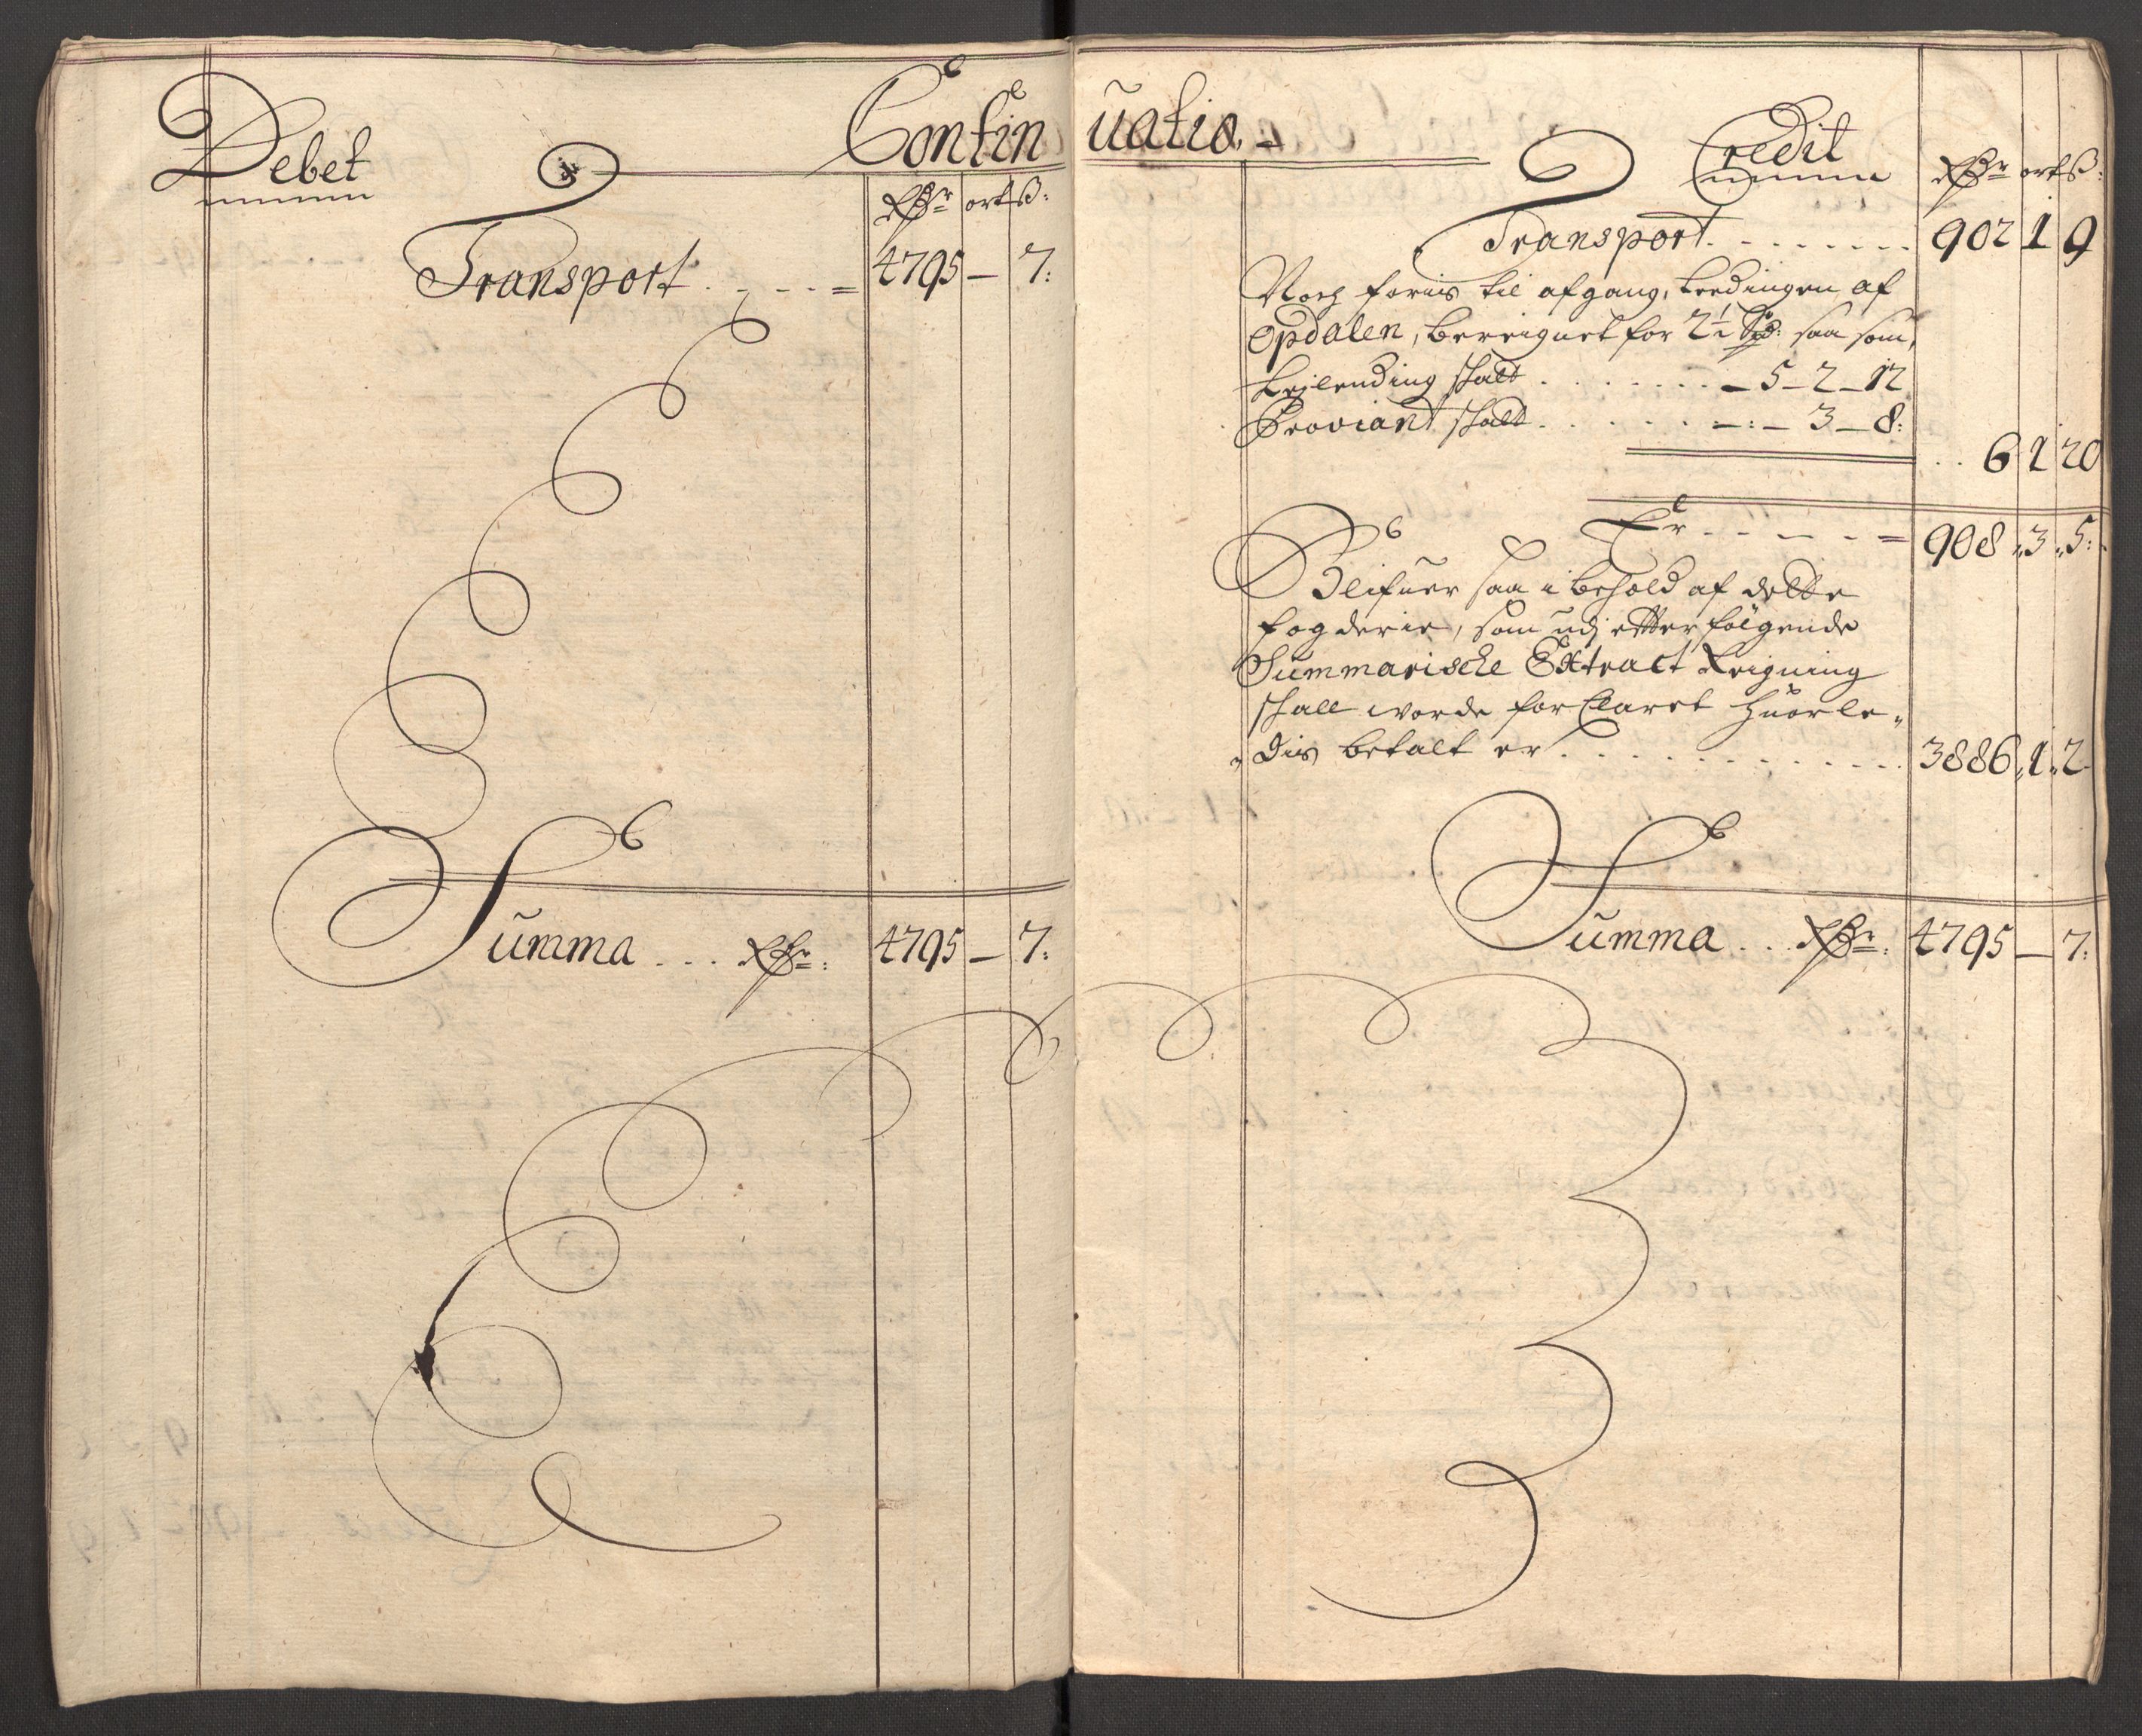 Debet
Contin
Rdr ort ß:
Transport . - - - = 4795 — 7:
Summa . . . Rdr: 4795 — 7:
uatio. -
Credit
Rdr ort ß:
Transport. - - - - - - - 902 1 9
Noch føris til afgang, Leedingen af
Opdalen, bereignet for 2½ Spd: saa som,
Leilending skatt . . . . . . . — 5 — 2 — 12
Proviant skatt . . . . . . — : — 3 — 8:
. . 6 1 20
Er - - - - - = 908 „ 3 „ 5:
Blifuer saa i behold af dette
fogderie, som udj efterfølgende
Summarische Extract Reigning
skall worde forclaret huorle„
„dis betalt er . . . . . . . . . . . . 3886 „ 1 „ 2
Summa . . . Rdr: 4795 — 7: